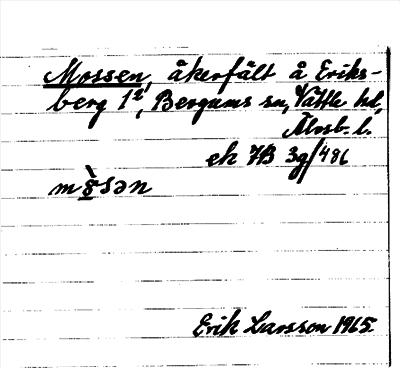 Mossen, åkerfält å Eriks-
berg 1², Bergums sn, Vättle hd,
Älvsb. l.
ek 7B 3g/486
m ò̱sən
Erik Larsson 1965.